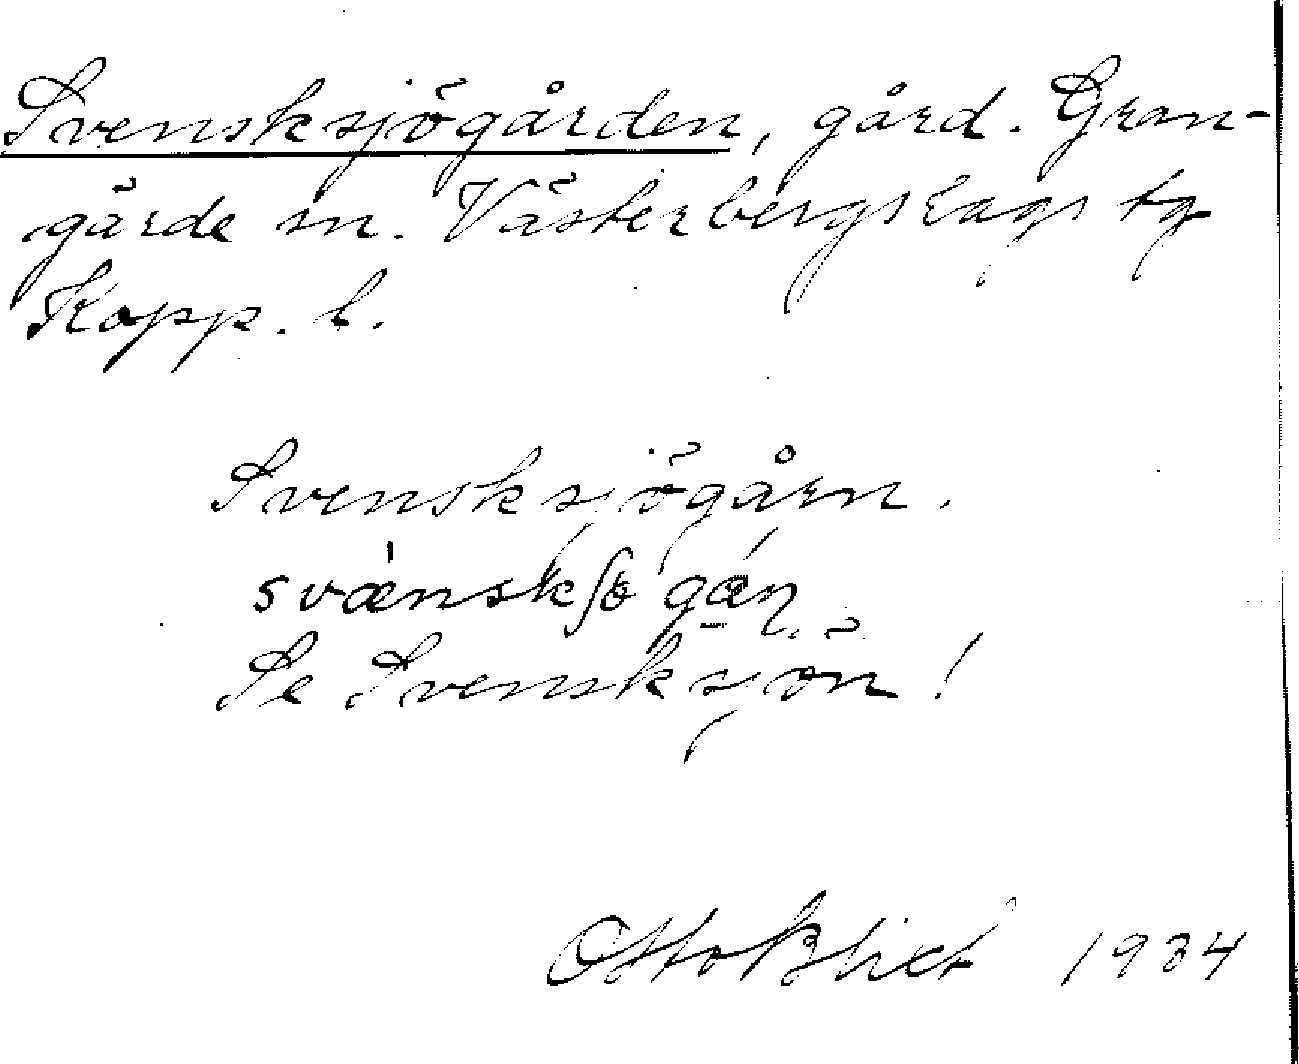 Svensksjögården, gård. Gran-
gärde sn. Västerbergslags tg
Kopp. l.
Svensksjögårn.
Se Svensksjön!
Otto Blixt 1934